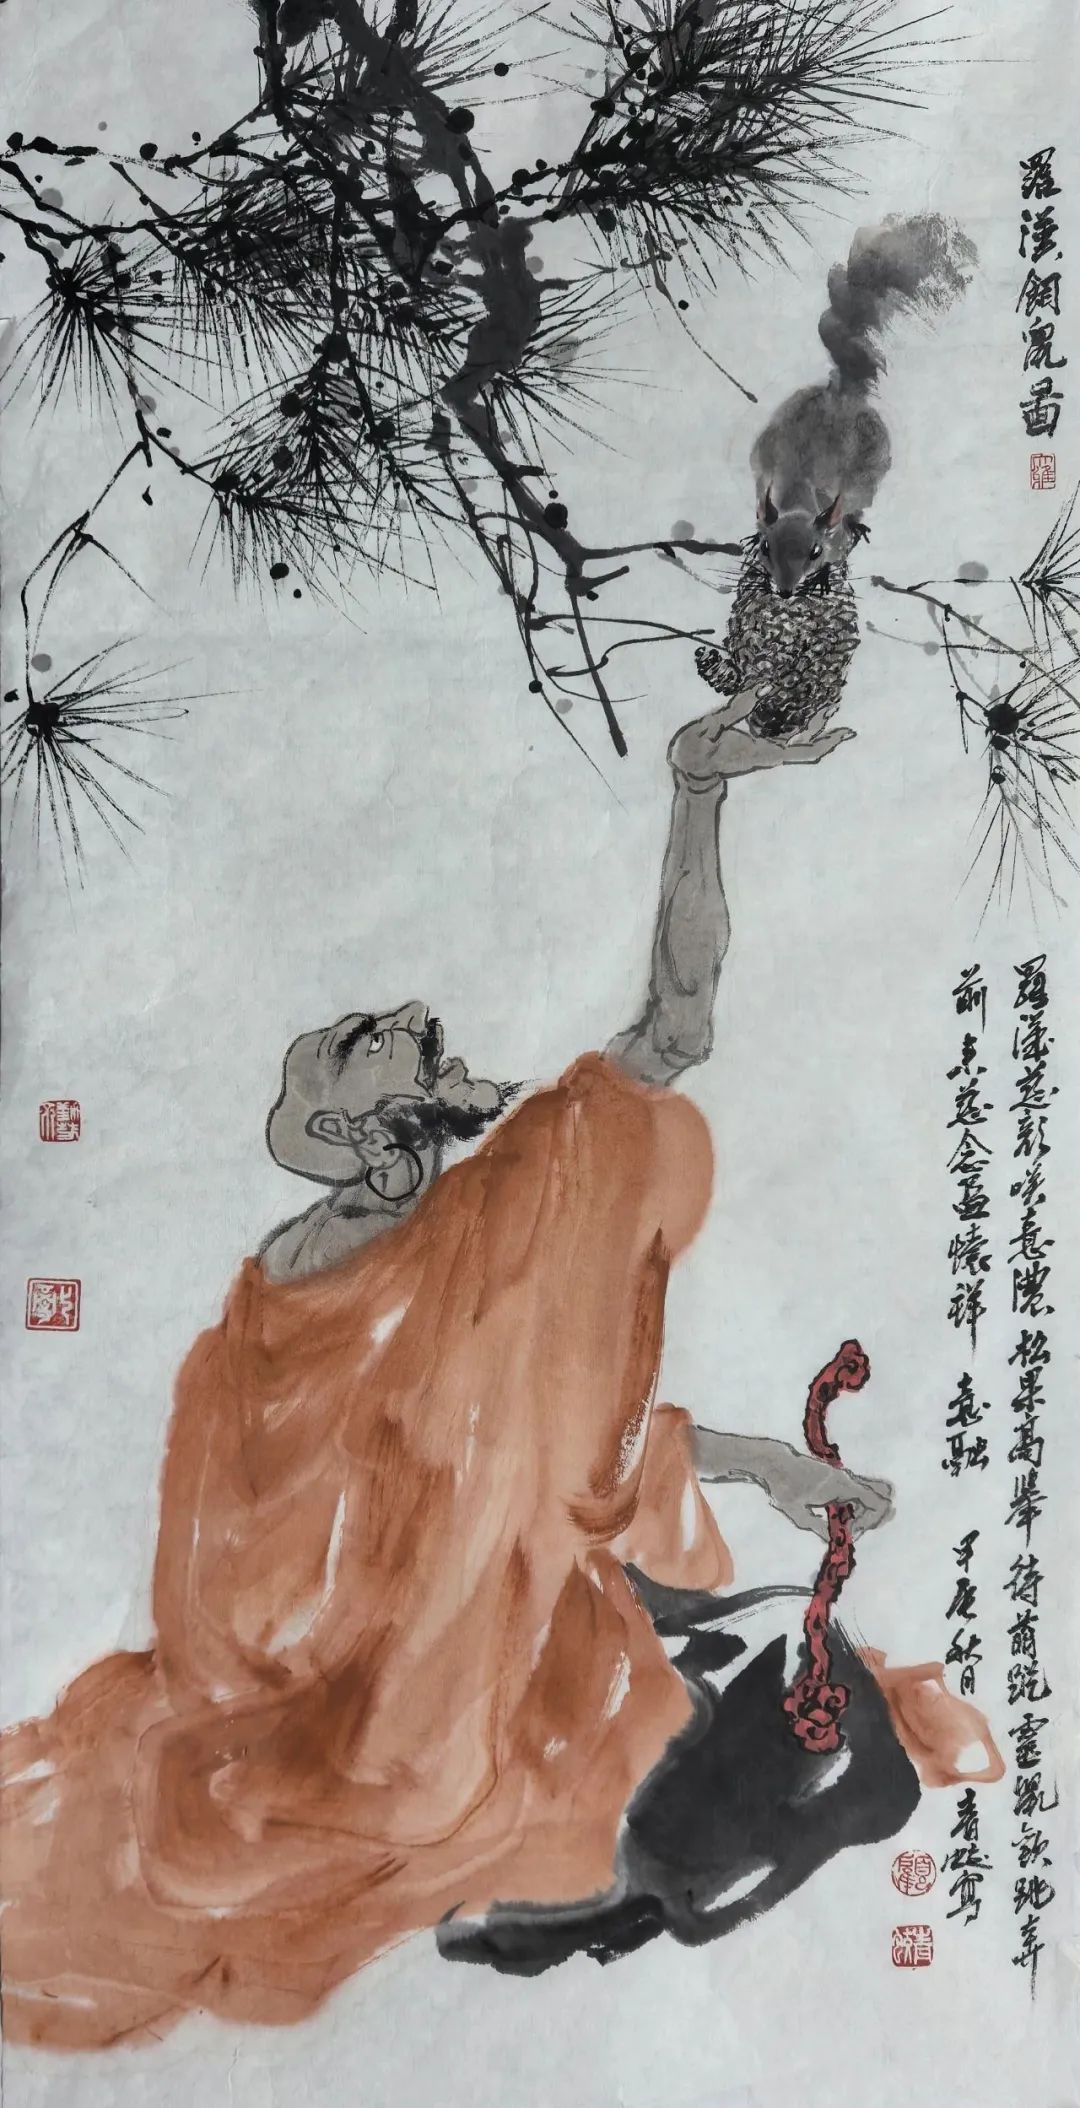 羅漢飼鼠啚
羅漢慈顏咲意濃松果高舉待萌蹤靈鼠欲跳奔
前慈念盈懷祥意融 甲辰秋月 寫